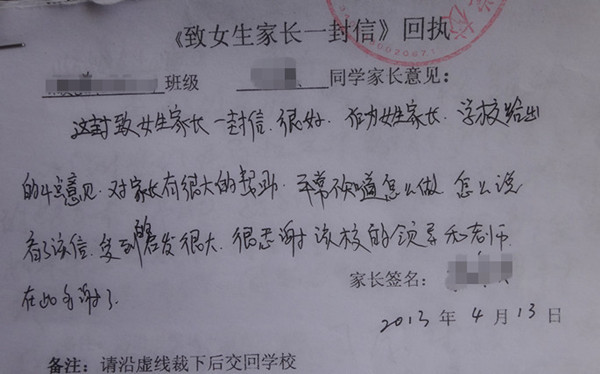 《致女生家长一封信》回执
班级 同学家长意见：
这封致女生家长一封信.很好.作为女生家长.学校给出
的4点意见.对家长有很大的帮助.平常不知道怎么做 怎么说
看了该信.受到启发很大.很感谢该校的领导和老师.
家长签名：
在此多谢了.
2013年4月13日
备注：请沿虚线裁下后交回学校